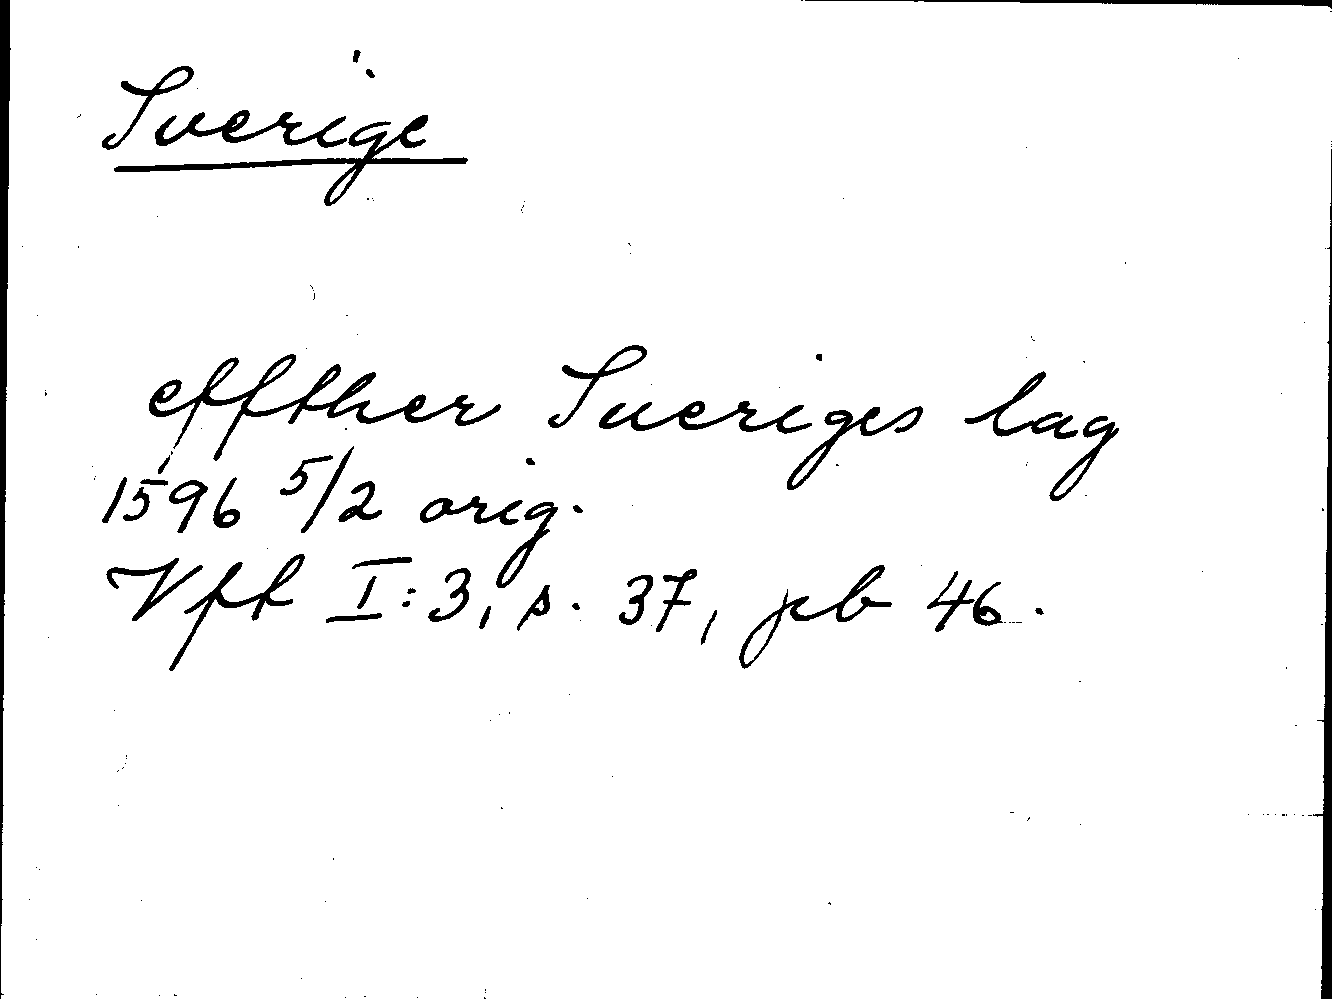 Sverige
effther Sueriges lag
1596 5/2 orig.
Vfk I:3, s. 37, pb 46.